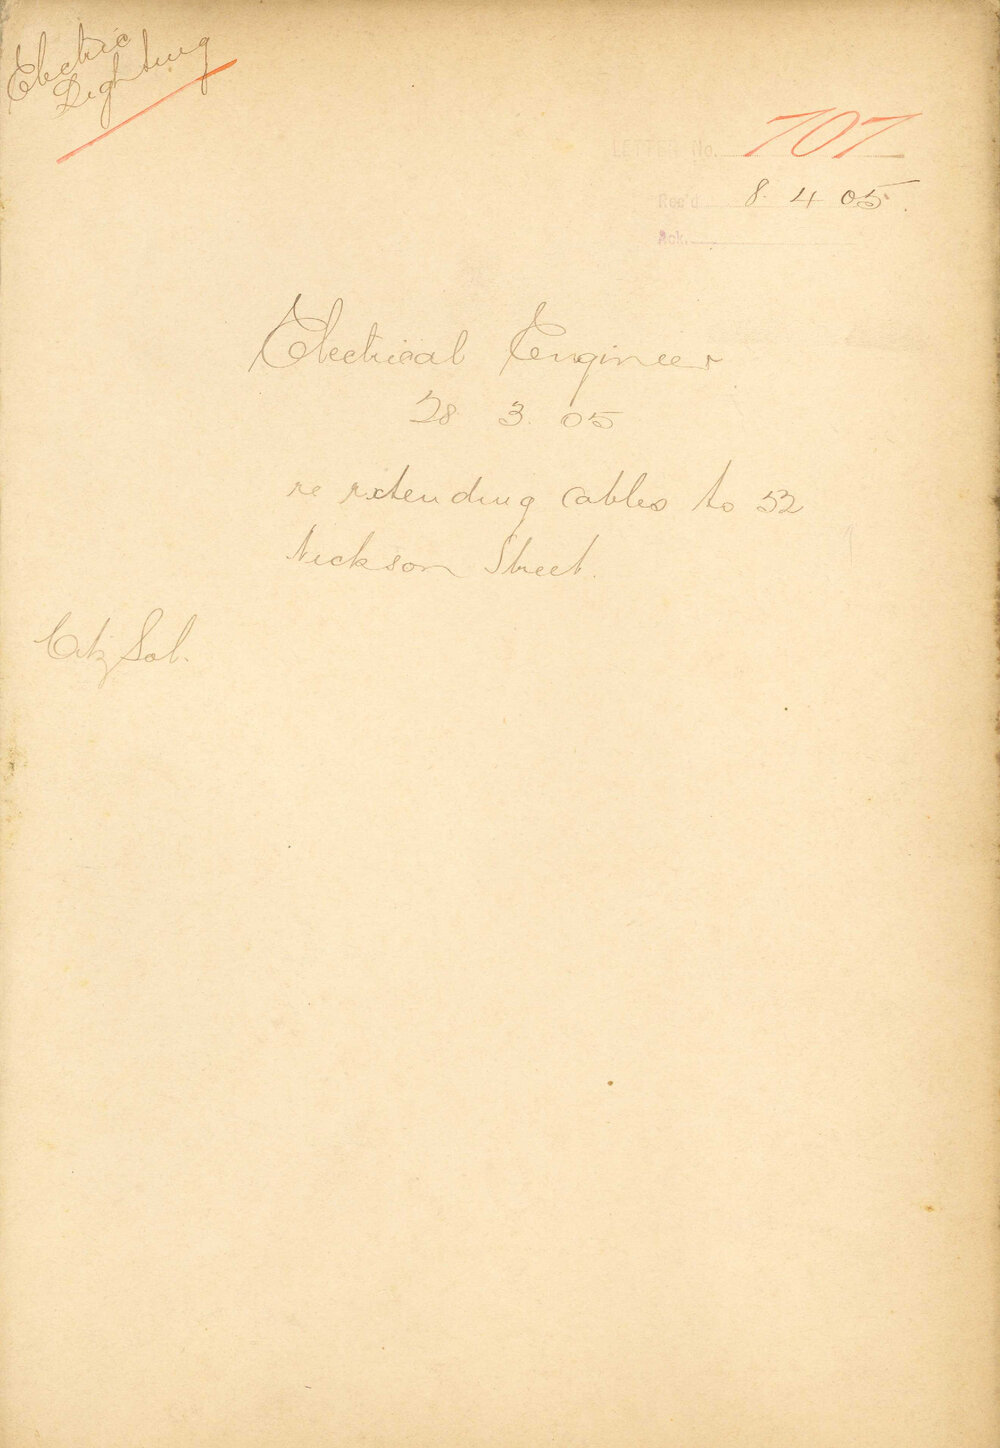 Electric
Lighting
LETTER No. 707
Rec'd 8. 4 05
Ack.
Electrical Engineer
28 3. 05
re extending cables to 52
Nickson Street.
City Sol.